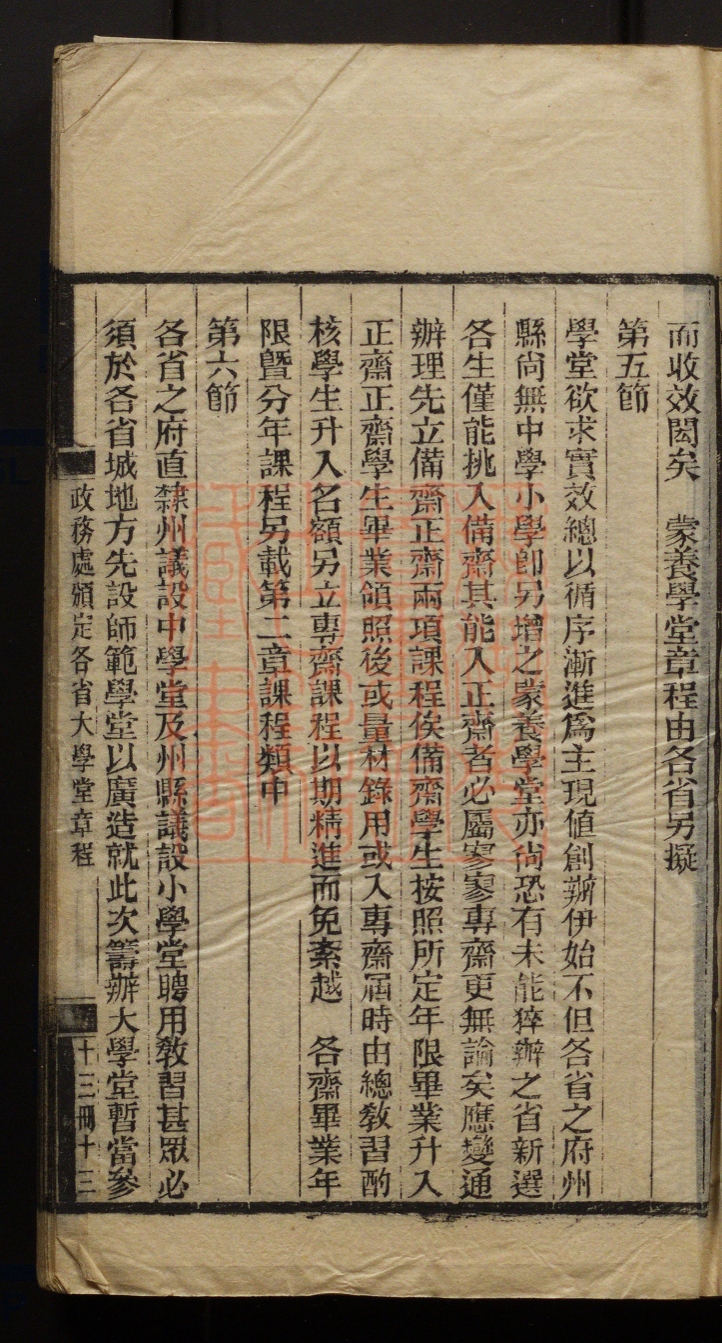 而收效閎矣　蒙養學堂章程由各省另擬
第五節
學堂欲求實效總以循序漸進爲主現値創辦伊始不但各省之府州
縣尙無中學小學卽另增之蒙養學堂亦尙恐有未能猝辦之省新選
各生僅能挑入備齋其能入正齋者必屬寥寥專齋更無論矣應變通
辦理先立備齋正齋兩項課程俟備齋學生按照所定年限畢業升入
正齋正齋學生畢業領照後或量材錄用或入專齋屆時由總敎習酌
核學生升入名額另立專齋課程以期精進而免紊越　各齋畢業年
限曁分年課程另載第二章課程類中
第六節
各省之府直隸州議設中學堂及州縣議設小學堂聘用敎習甚眾必
須於各省城地方先設師範學堂以廣造就此次籌辦大學堂暫當參
政務處頒定各省大學堂章程
十三冊十三